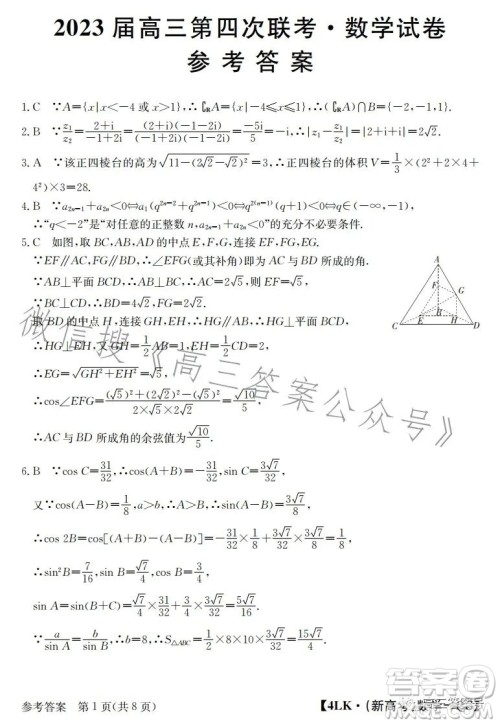 2023届高三第四次联考·数学试卷
参考答案
1.C ∵A={x|x<-4或x>1},∴∁RA={x|-4≤x≤1},∴(∁RA)∩B={-2,-1,1}.
2.B ∵z₁/z₂=(2+i)/(-1+2i)=(2+i)(-1-2i)/(-1+2i)(-1-2i)=-5i/5=-i,∴|z₁-z₂|=|2+i+1-2i|=
3.A ∵该正四棱台的高为√(11-(2√2-√2)²)=3,∴正四棱台的体积V=1/3×(2²+2×4+
4²)×3=28.
4.B ∵a₂ₙ₋₁+a₂ₙ<0⇔a₁(q²ⁿ⁻²+q²ⁿ⁻¹)<0⇔q²⁽ⁿ⁻¹⁾(q+1)<0⇔q<-1,
∴“q<-2”是“对任意的正整数n,a₂ₙ₋₁+a₂ₙ<0”的充分不必要条件.
5.C 如图,取BC,AB,AD的中点E,F,G,连接EF,FG,EG.
∵EF∥AC,FG∥BD,∴∠EFG(或其补角)即为AC与BD所成的角.
∵AB⊥平面BCD,∴AB⊥BC,∴AC=2√5,∴EF=√5,
∵BC⊥CD,∴BD=4√2,∴FG=2√2.
取BD的中点H,连接GH,EH,∴GH∥AB,∴HG⊥平面BCD,
∴HG⊥EH,又∵GH=1/2AB=1,EH=1/2CD=2,
∴EG=√(GH²+EH²)=√5,
∴cos∠EFG=((√5)²+(2√2)²-(√5)²)/(2×√5×2√2)=√10/5,
∴AC与BD所成角的余弦值为√10/5.
6.B ∵cos C=31/32,∴cos(A+B)=-31/32,sin C=3√7/32,
又∵cos(A-B)=1/8,a>b,∴A>B,∴sin(A-B)=3√7/8,
∴cos 2B=cos[(A+B)-(A-B)]=-31/32×1/8+3√7/32×3√7/8=1/8,
∴sin²B=7/16,sin B=√7/4,cos B=3/4,
sin A=sin(B+C)=√7/4×31/32+3/4×3√7/32=5√7/16,
∵a/sin A=b/sin B,∴b=8,∴S△ABC=1/2×8×10×3√7/32=15√7/4.
A
F
G
B
H
C
E
D
微信搜《高三答案公众号》
参考答案 第1页(共8页)
【4LK·(新高考)数学